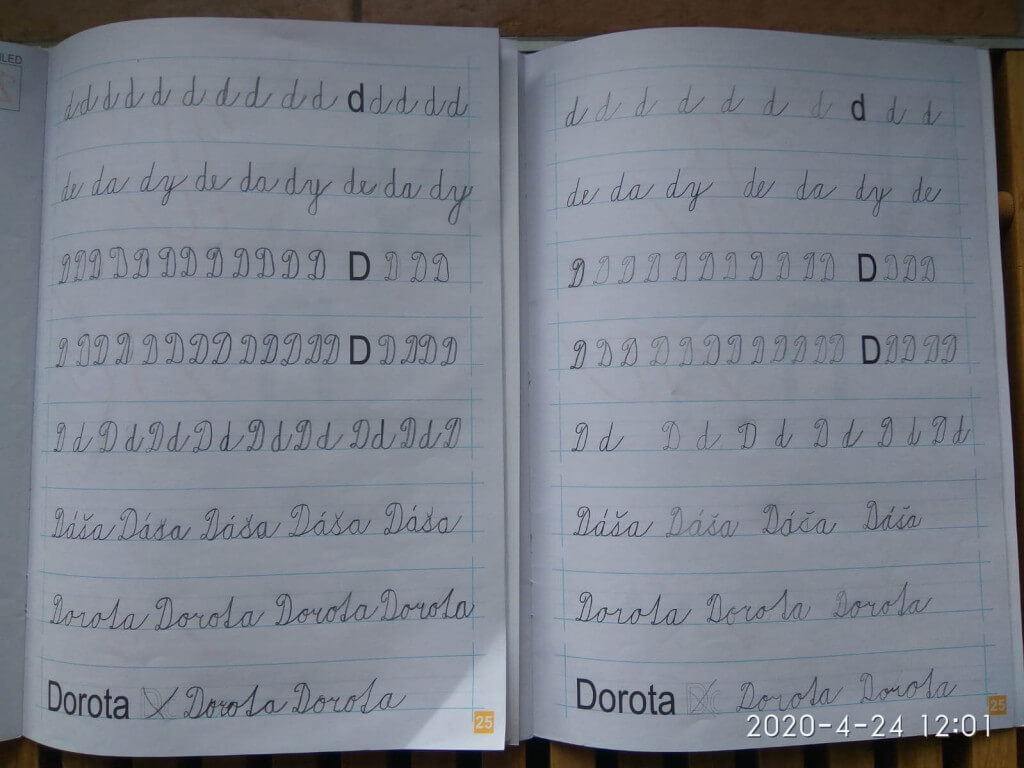 ILED
d d d d d d d d d d d d d d d d
de da dy de da dy de da dy
D D D D D D D D D D D D D D D D
D D D D D D D D D D D D D D D D D
D d D d D d D d D d D d D d D d D
Dáša Dáša Dáša Dáša Dáša
Dorota Dorota Dorota Dorota
Dorota Dorota Dorota
25
d d d d d d d d d d
de da dy de da dy de
D D D D D D D D D D D D D D D
D D D D D D D D D D D D D D D
D d D d D d D d D d D d
Dáša Dáša Dáča Dáša
Dorota Dorota Dorota
Dorota Dorota Dorota
25
2020-4-24 12:01